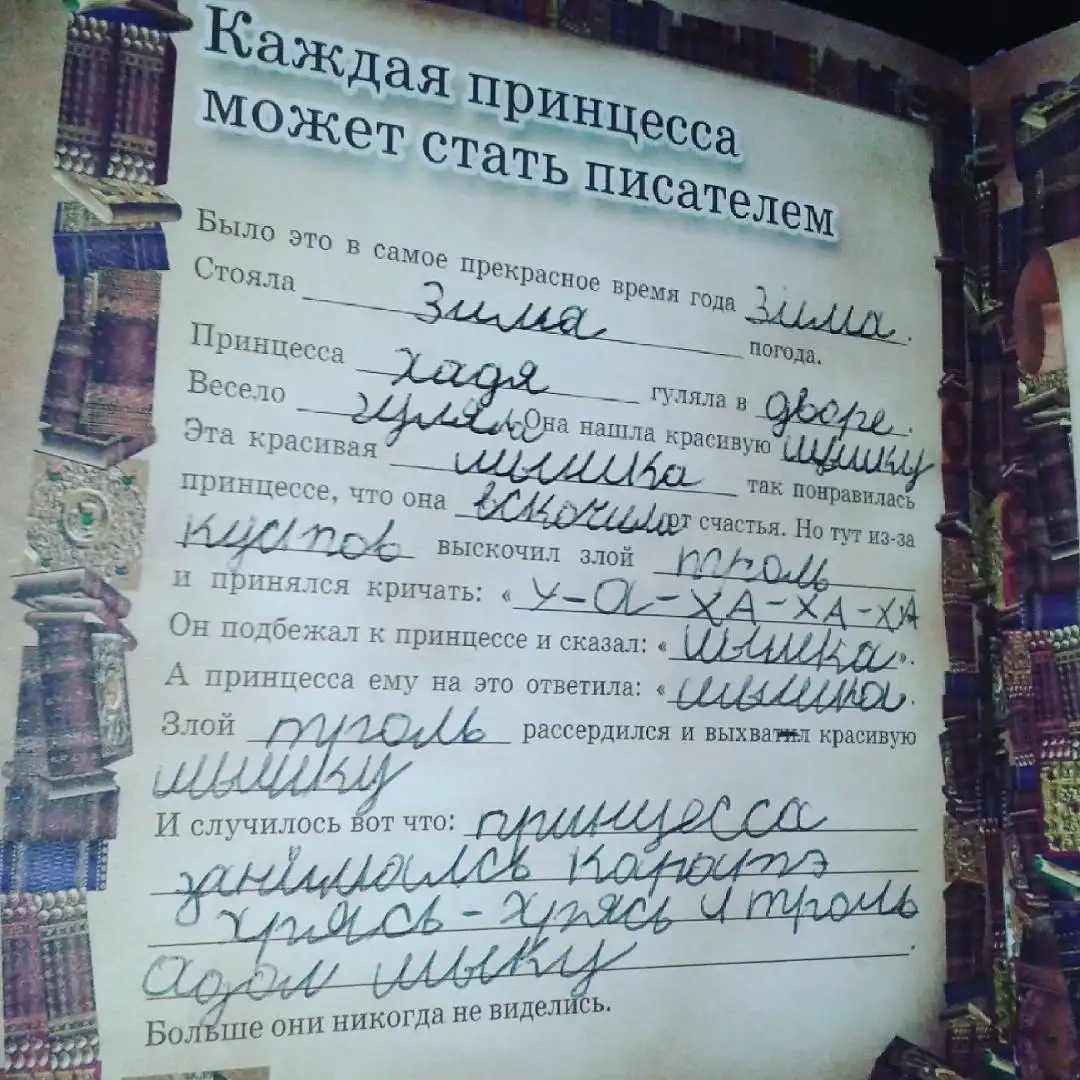 Каждая принцесса
может стать писателем
Было это в самое прекрасное время года Зима.
Стояла Зима погода.
Принцесса хадя гуляла в дворе.
Весело гуляла Она нашла красивую шышку
Эта красивая шышка так понравилась
принцессе, что она вскочила от счастья. Но тут из-за
кустов выскочил злой троль
и принялся кричать: « У-а-ХА-ХА-ХА
Он подбежал к принцессе и сказал: « шышка».
А принцесса ему на это ответила: « шышка.
Злой троль рассердился и выхватил красивую
шышку
И случилось вот что: принцесса
занималсь каратэ
хрясь-хрясь и троль
адал шыку.
Больше они никогда не виделись.